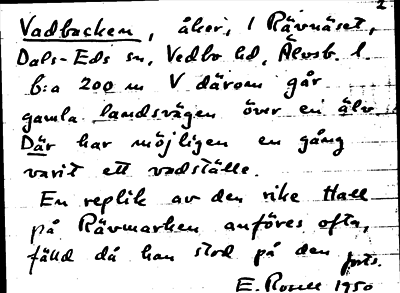 2
Vadbacken, åker, i Rävnäset,
Dals-Eds sn, Vedbo hd, Älvsb. l.
b:a 200 m V därom går
gamla landsvägen över en älv.
Där har möjligen en gång
varit ett vadställe.
En replik av den rike Hall
på Rävmarken anföres ofta,
fälld då han stod på den forts.
E. Rosell 1950